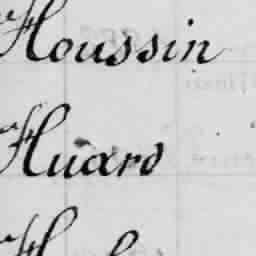 Houssin
Huard